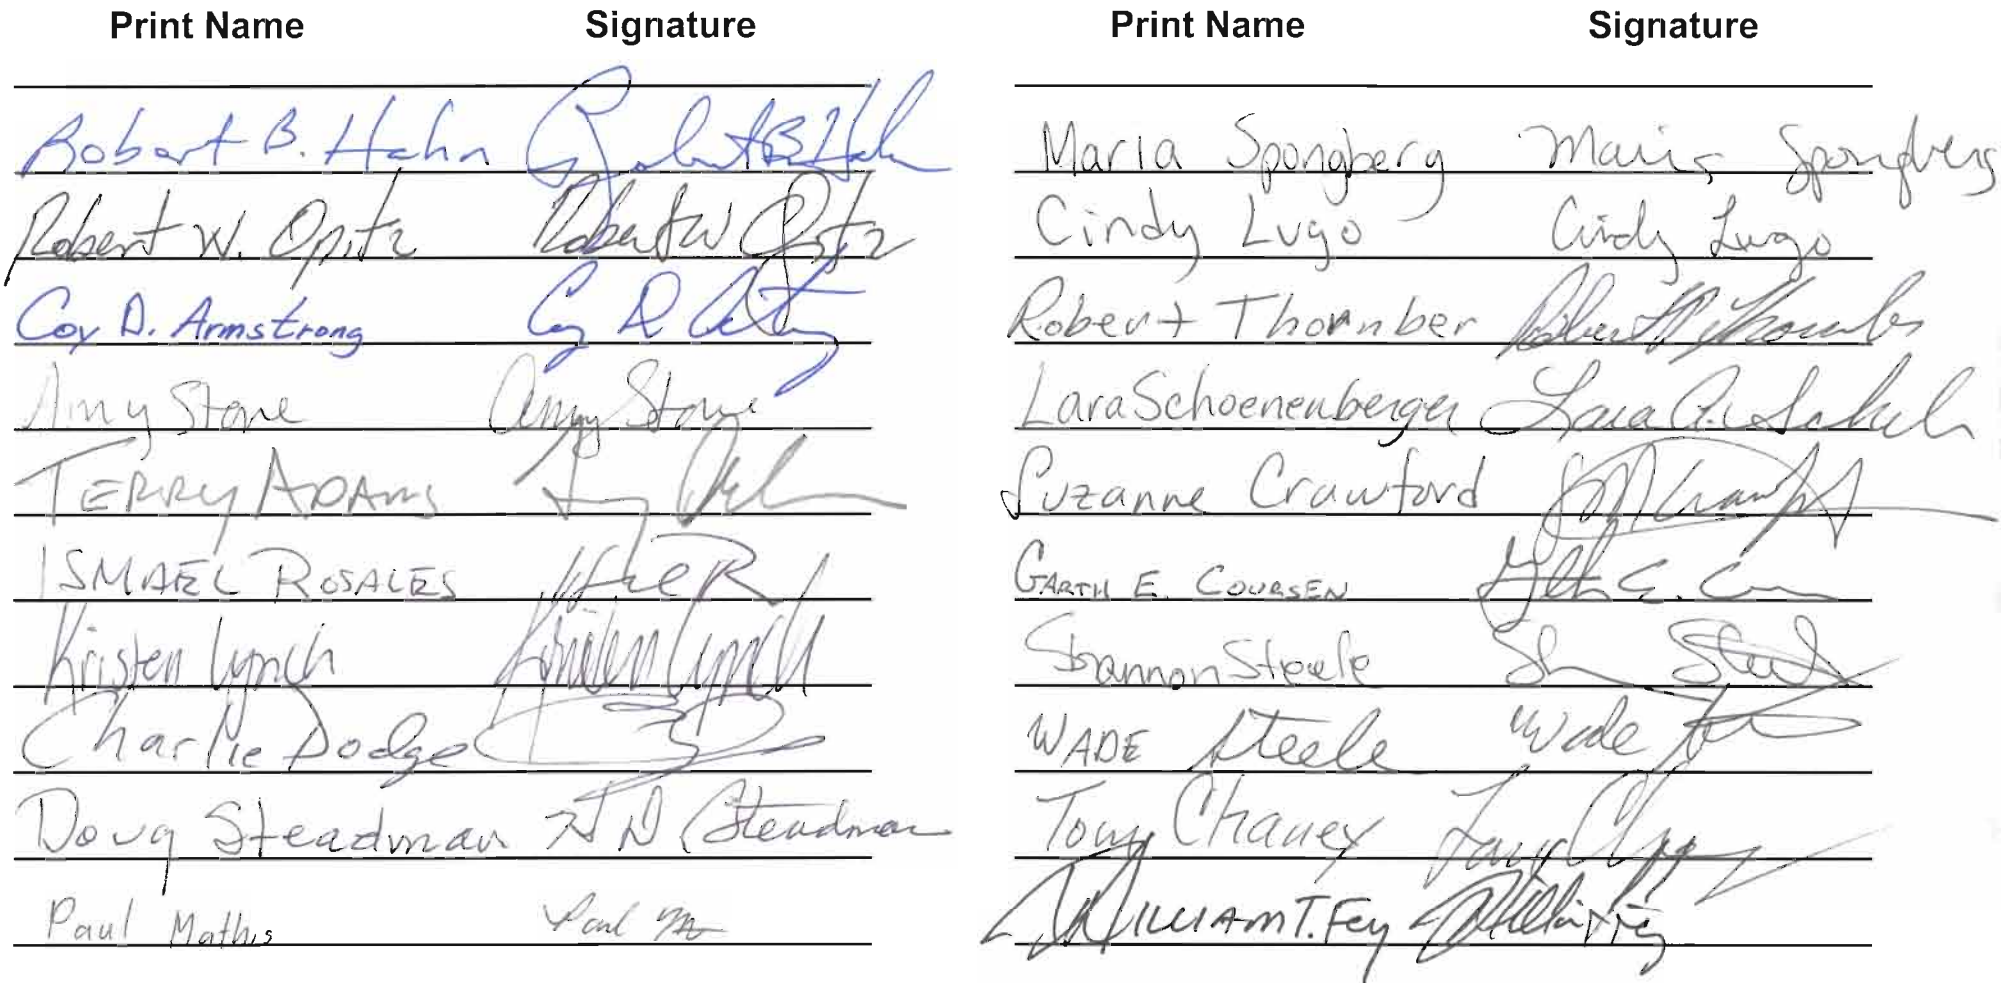 Print Name Signature
Robert B. Hahn Robert B Hahn
Robert W. Opitz Robert W Opitz
Coy D. Armstrong Coy D
Amy Stone Amy Stone
TERRY ADAMS Terry
ISMAEL ROSALES
Kristen Lynch Kristen Lynch
Charlie Dodge
Doug Steadman D Steadman
Paul Mathis Paul
Print Name Signature
Maria Spongberg Maria Spongberg
Cindy Lugo Cindy Lugo
Robert Thornber Robert Thornber
Lara Schoenenberger Lara A.
Suzanne Crawford Crawford
GARTH E. COURSEN
Shannon Steele Steele
WADE Steele Wade
Tony Chaney Tony
WILLIAM T. Fey